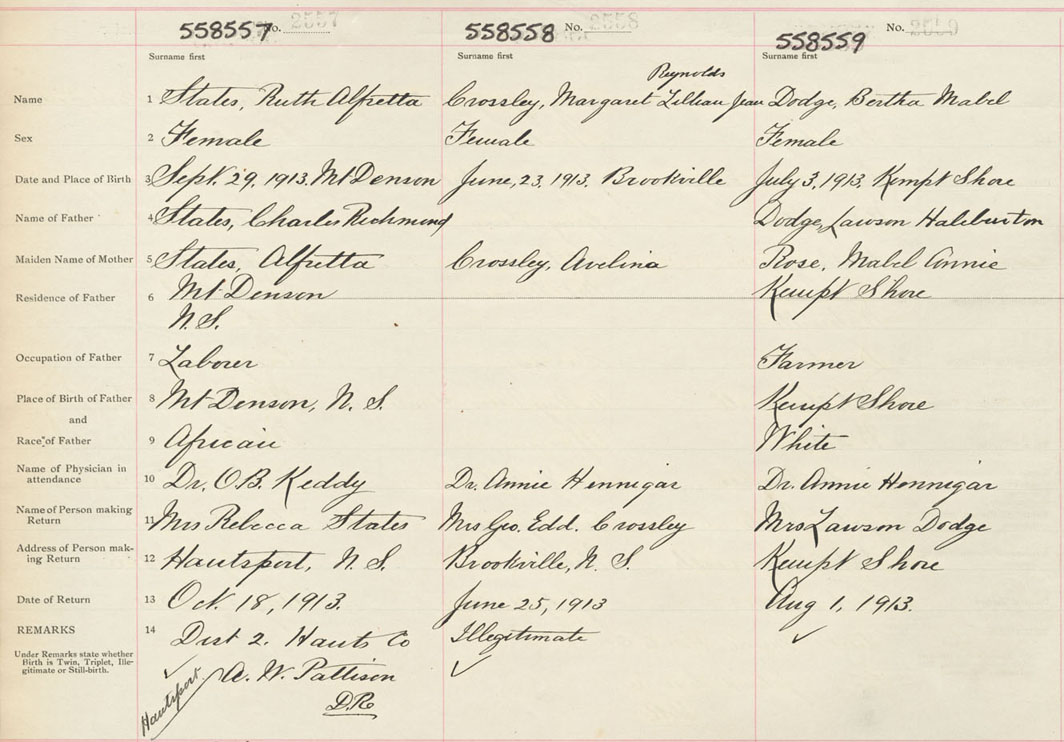 558557 No. 2557 558558 No. 2558 558559 No.
Surname first Surname first Surname first
Reynolds
Name 1 States, Ruth Alfretta Crossley, Margaret Lillian Jean Dodge, Bertha Mabel
Sex 2 Female Female Female
Date and Place of Birth 3 Sept. 29, 1913. Mt Denson June, 23, 1913. Brookville July 3, 1913. Kempt Shore
Name of Father 4 States, Charles Richmond Dodge, Lawson Haliburton
Maiden Name of Mother 5 States, Alfretta Crossley, Avelina Rose, Mabel Annie
Residence of Father 6 Mt Denson Kempt Shore
N.S.
Occupation of Father 7 Laborer Farmer
Place of Birth of Father 8 Mt Denson, N. S. Kempt Shore
and
Race of Father 9 African White
Name of Physician in
attendance 10 Dr. O.B. Keddy Dr. Annie Hennigar Dr. Annie Hennigar
Name of Person making
Return 11 Mrs Rebecca States Mrs Geo. Edd. Crossley Mrs Lawson Dodge
Address of Person mak-
ing Return 12 Hantsport, N. S. Brookville, N. S. Kempt Shore
Date of Return 13 Oct. 18, 1913. June 25, 1913 Aug 1, 1913.
REMARKS 14 Dist 2. Hants Co Illegitimate ✓
Under Remarks state whether
Birth is Twin, Triplet, Ille-
gitimate or Still-birth.
✓ A. W. Pattison ✓
D.R.
Hantsport.